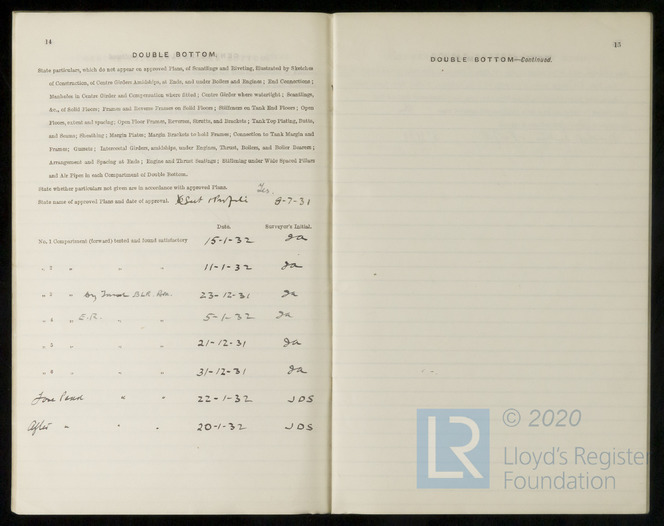 14
DOUBLE BOTTOM.
State particulars, which do not appear on approved Plans, of Scantlings and Riveting, illustrated by Sketches
of Construction, of Centre Girders Amidships, at Ends, and under Boilers and Engines; End Connections;
Manholes in Centre Girder and Compensation where fitted; Centre Girder where watertight; Scantlings,
&c., of Solid Floors; Frames and Reverse Frames on Solid Floors; Stiffeners on Tank End Floors; Open
Floors, extent and spacing; Open Floor Frames, Reverses, Struts, and Brackets; Tank Top Plating, Butts,
and Seams; Sheathing; Margin Plates; Margin Brackets to hold Frames; Connection to Tank Margin and
Frames; Gussets; Intercostal Girders, amidships, under Engines, Thrust, Boilers, and Boiler Bearers;
Arrangement and Spacing at Ends; Engine and Thrust Seatings; Stiffening under Wide Spaced Pillars
and Air Pipes in each Compartment of Double Bottom.
State whether particulars not given are in accordance with approved Plans. Yes.
State name of approved Plans and date of approval. 8-7-31
Date. Surveyor's Initial.
No. 1 Compartment (forward) tested and found satisfactory 15-1-32
" 2 " " " 11-1-32
" 3 " 23-12-31
" 4 " E.R. " " 5-1-32
" 5 " " " 21-12-31
" 6 " " " 31-12-31
Fore Peak " " 22-1-32 JDS
After " " " 20-1-32 JDS
15
DOUBLE BOTTOM—Continued.
LR
© 2020
Lloyd's Register
Foundation